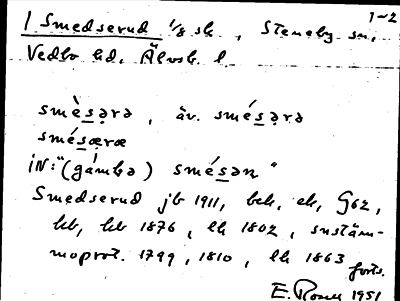 1-2
1 Smedserud 1/8 sk., Steneby sn,
Vedbo hd, Älvsb. l.
smèsərə, äv. smésərə
smésæræ
iN: "(gámbə) smésən"
Smedserud jb 1911, bek, ek, G62,
kb, kb 1876, lk 1802, snstäm-
moprot. 1799, 1810, lk 1863
forts.
E. Rosell 1951